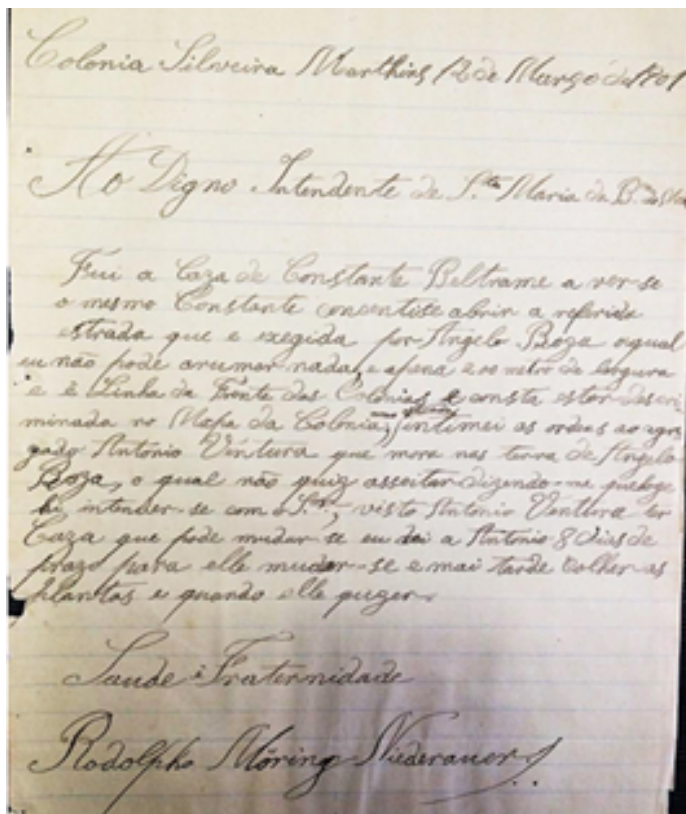 Colonia Silveira Marthins 12 de Março de 1901
Ao Digno Intendente de Sta Maria da B. do Mte
Fui a Caza de Constante Beltrame a ver se
o mesmo Constante consentise abrir a referida
estrada que e exegida por Angelo Boza oqual
eu não pode arumar nada, e apena 200 metro de largura
e é Linha da Fronte das Colonias e consta estar descri-
minada no Mapa da Colonia, intimei as ordes ao agre-
gado Antonio Ventura que mora nas terra de Angelo
Boza, o qual não quiz asseitar dizendo-me que hoge
hi intender-se com o Snr, visto Antonio Ventura ter
Caza que pode mudar-se eu dei a Antonio 8 dias de
prazo para elle mudar-se e mai tarde Colher as
plantas e quando elle quizer.
Saude e Fraternidade
Rodolpho Möring Niederauer